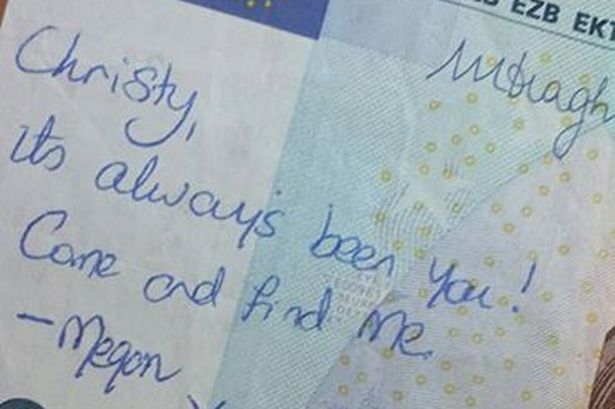 EZB EKT
Christy,
its always been you!
Come and find me.
-Megan